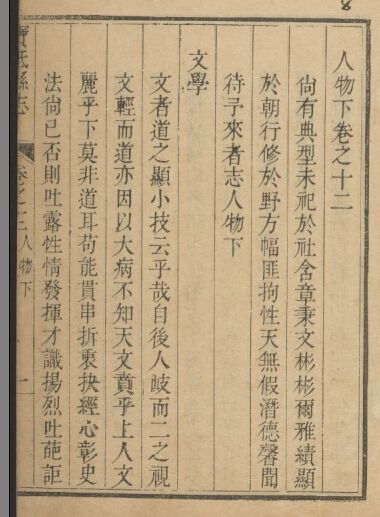 8
人物下卷之十二
尙有典型未祀於社含章秉文彬彬爾雅績顯
於朝行修於野方幅匪拘性天無假潛德馨聞
待予來者志人物下
文學
文者道之顯小技云乎哉自後人歧而二之視
文輕而道亦因以大病不知天文賁乎上人文
麗乎下莫非道耳苟能貫串折衷抉經心彰史
法尙已否則吐露性情發揮才識揚烈吐葩詎
寶坻縣志
卷之十二人物下
一